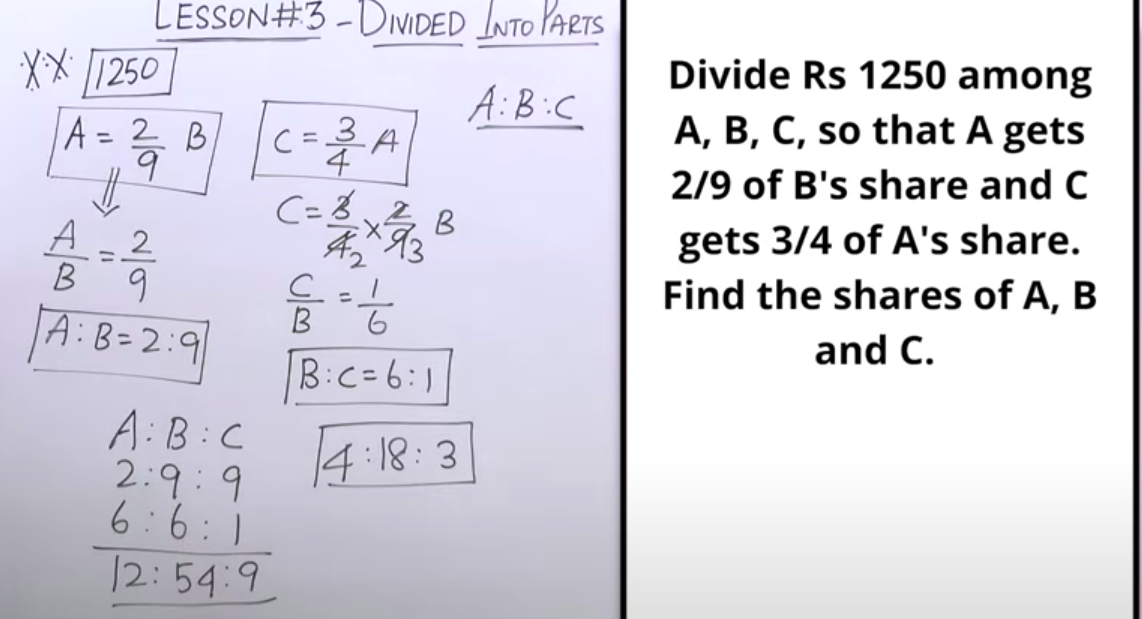 LESSON#3 - DIVIDED INTO PARTS
XX 1250
A = 2/9 B
A/B = 2/9
A:B=2:9
C = 3/4 A
C = 3/4 2 × 2/9 3 B
C/B = 1/6
B:C=6:1
A:B:C
A:B:C
2:9:9
6:6:1
12:54:9
4:18:3
Divide Rs 1250 among
A, B, C, so that A gets
2/9 of B's share and C
gets 3/4 of A's share.
Find the shares of A, B
and C.